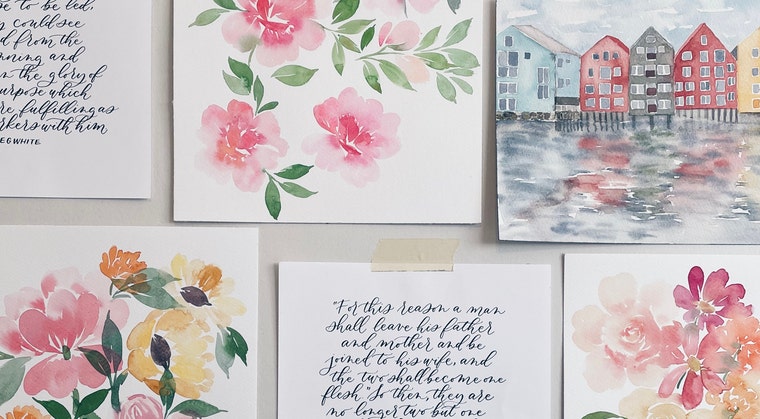 to be led,
could see
from the
and
in the glory of
purpose which
fulfilling as
with him
EG WHITE
"For this reason a man
shall leave his father
and mother and be
joined to his wife, and
the two shall become one
flesh." So then, they are
no longer two but one